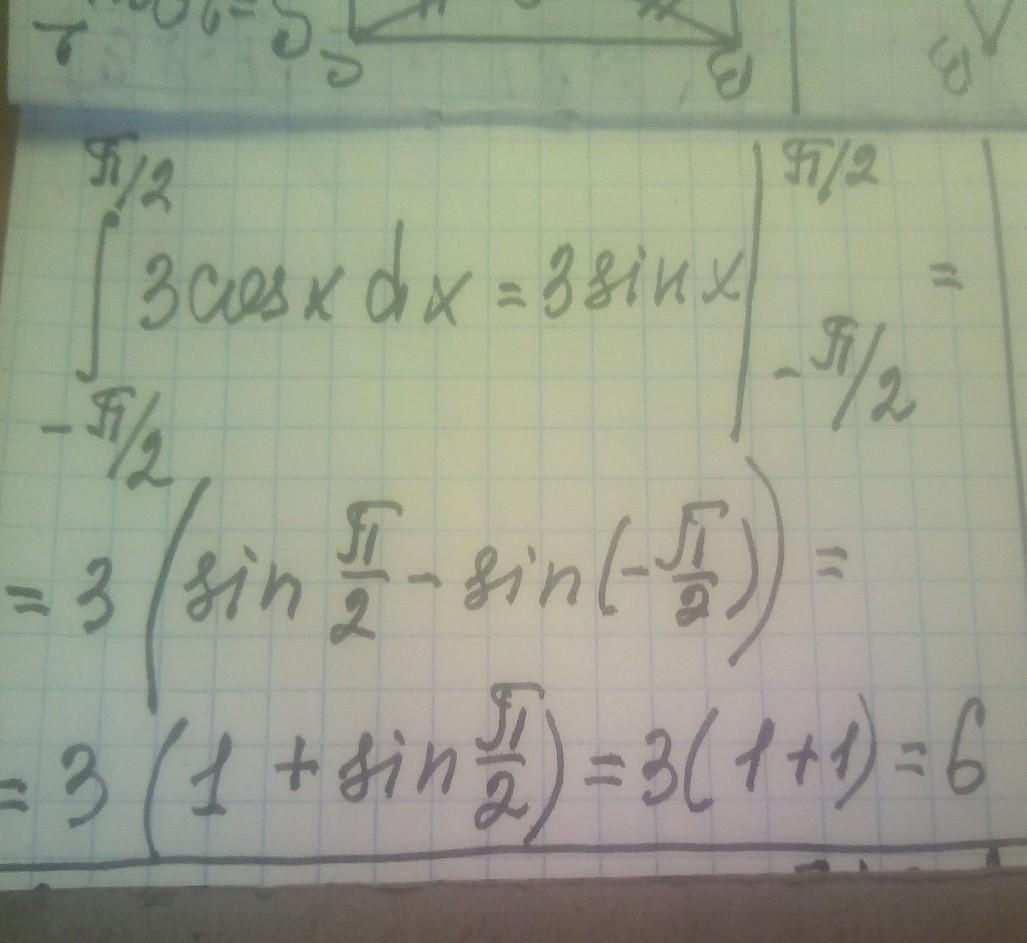 π/2
∫ 3cosx dx = 3sin x | π/2 =
-π/2 -π/2
= 3 (sin π/2 - sin(-π/2)) =
= 3 (1 + sin π/2) = 3(1+1) = 6